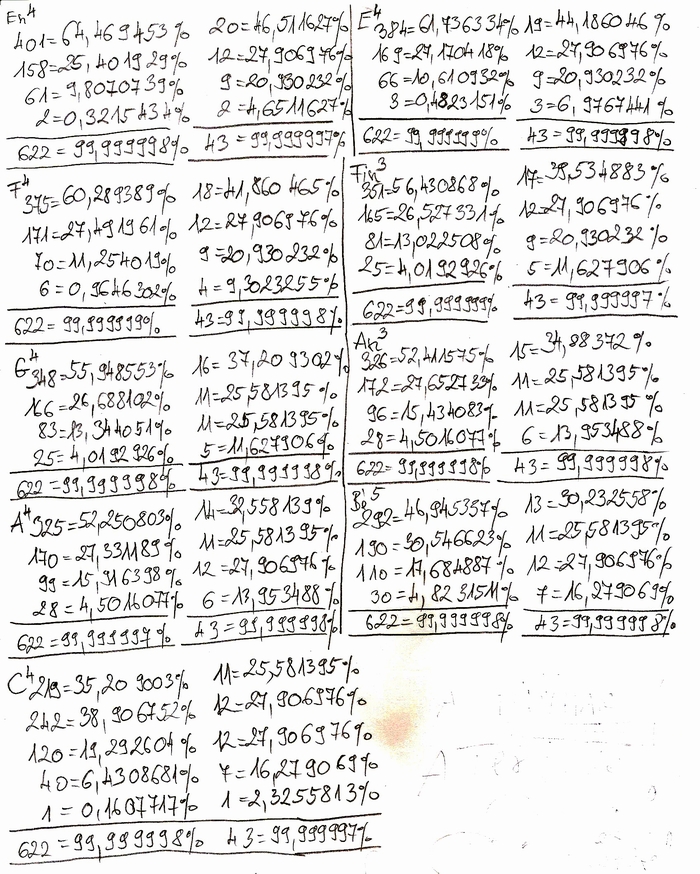 En⁴
401=64,469453%
158=25,401929%
61=9,8070739%
2=0,3215434%
622=99,999998%
20=46,511627%
12=27,906976%
9=20,930232%
2=4,6511627%
43=99,999997%
E⁴
384=61,736334%
169=27,170418%
66=10,610932%
3=0,4823151%
622=99,999999%
19=44,186046%
12=27,906976%
9=20,930232%
3=6,9767441%
43=99,999998%
F⁴
375=60,289389%
171=27,491961%
70=11,254019%
6=0,9646302%
622=99,999999%
18=41,860465%
12=27,906976%
9=20,930232%
4=9,3023255%
43=99,999998%
Fin³
351=56,430868%
165=26,527331%
81=13,022508%
25=4,0192926%
622=99,999999%
17=39,534883%
12=27,906976%
9=20,930232%
5=11,627906%
43=99,999997%
G⁴
348=55,948553%
166=26,688102%
83=13,344051%
25=4,0192926%
622=99,999998%
16=37,209302%
11=25,581395%
11=25,581395%
5=11,627906%
43=99,999998%
326=52,411575%
172=27,652733%
96=15,434083%
28=4,5016077%
622=99,999998%
15=34,88372%
11=25,581395%
11=25,581395%
6=13,953488%
43=99,999998%
A⁴
325=52,250803%
170=27,331189%
99=15,916398%
28=4,5016077%
622=99,999997%
14=32,558139%
11=25,581395%
12=27,906976%
6=13,953488%
43=99,999998%
292=46,945337%
190=30,546623%
110=17,684887%
30=4,8231511%
622=99,999998%
13=30,232558%
11=25,581395%
12=27,906976%
7=16,279069%
43=99,999998%
C⁴
219=35,209003%
242=38,906752%
120=19,292604%
40=6,4308681%
1=0,1607717%
622=99,999998%
11=25,581395%
12=27,906976%
12=27,906976%
7=16,279069%
1=2,3255813%
43=99,999997%